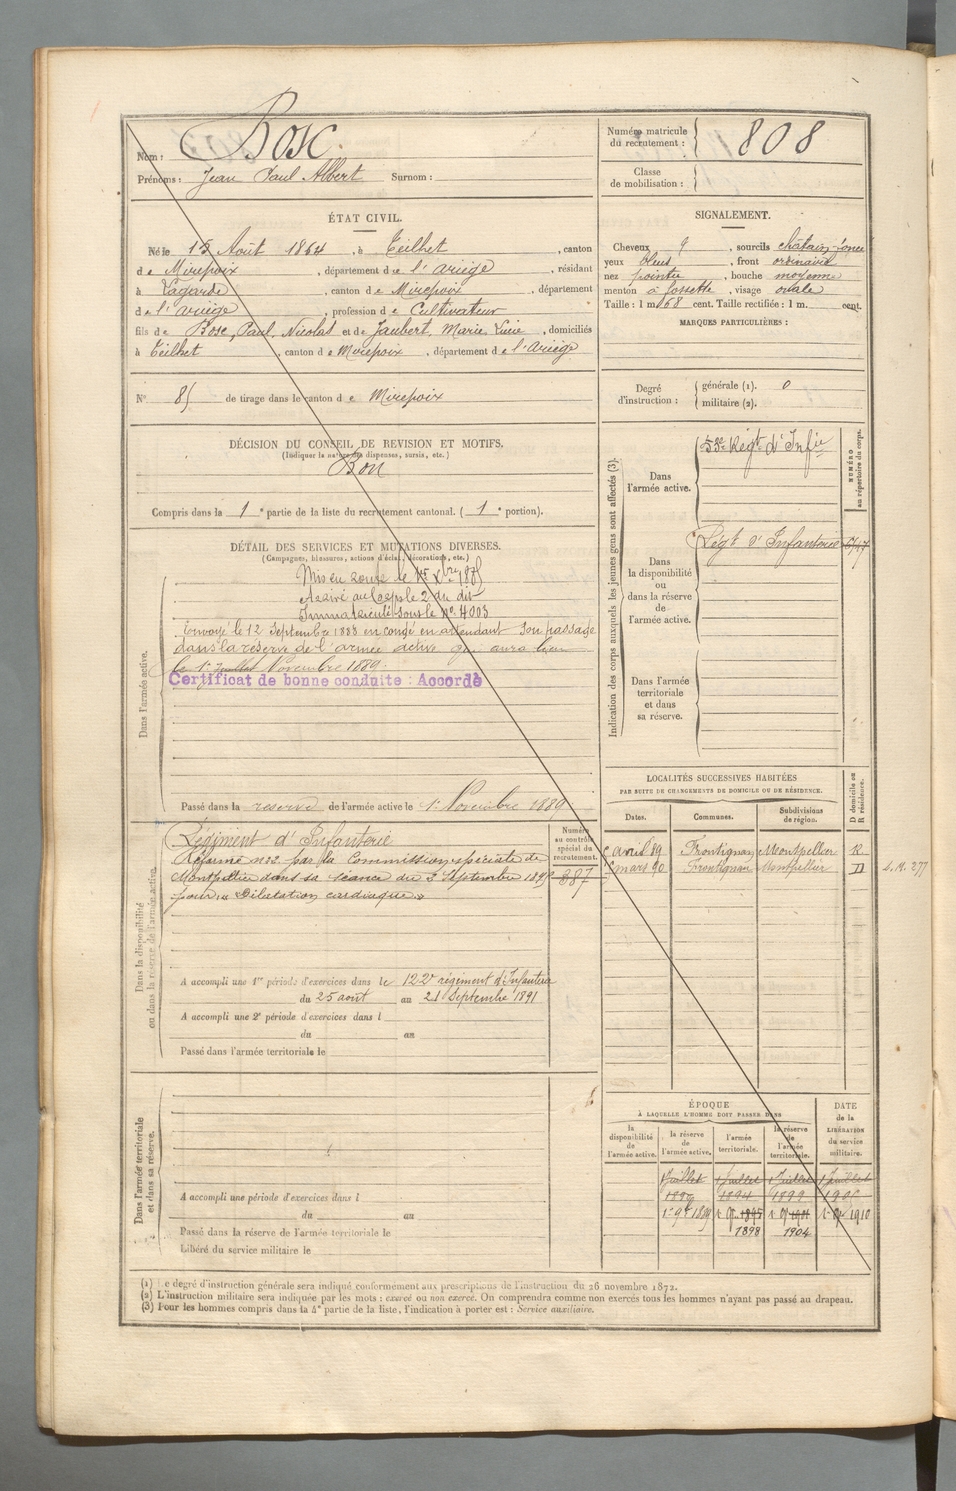 Nom : Bosc
Prénoms : Jean Paul Albert Surnom :
Numéro matricule du recrutement : 808
Classe de mobilisation :
ÉTAT CIVIL.
Né le 15 Août 1864, à Teilhet, canton
de Mirepoix, département de l'ariège, résidant
à Lagarde, canton de Mirepoix, département
de l'ariège, profession de Cultivateur
fils de Bosc, Paul, Nicolas et de Jaubert, Marie, Lucie, domiciliés
à Teilhet, canton de Mirepoix, département de l'Ariège
SIGNALEMENT.
Cheveux, sourcils châtain
yeux bleus, front ordinaire
nez pointu, bouche moyenne
menton à fossette, visage ovale
Taille : 1 m. 68 cent. Taille rectifiée : 1 m. cent.
MARQUES PARTICULIÈRES :
N° 85 de tirage dans le canton de Mirepoix
Degré d'instruction : générale (1). 0
militaire (2).
DÉCISION DU CONSEIL DE REVISION ET MOTIFS.
(Indiquer la nature des dispenses, sursis, etc.)
Bon
Compris dans la 1e partie de la liste du recrutement cantonal. (1e portion).
DÉTAIL DES SERVICES ET MUTATIONS DIVERSES.
(Campagnes, blessures, actions d'éclat, décorations, etc.)
Dans l'armée active.
Mis en route le 1er Xbre 1885
Arrivé au Corps le 2 du dit
Immatriculé sous le N°. 4003
Envoyé le 12 Septembre 1888 en congé en attendant son passage
dans la réserve de l'armée active qui aura lieu
le 1er Juillet Novembre 1889.
Certificat de bonne conduite : Accordé
Passé dans la reserve de l'armée active le 1er Novembre 1889
Indication des corps auxquels les jeunes gens sont affectés (3).
NUMÉRO au répertoire du corps.
Dans l'armée active. Régt d'Infie
Dans la disponibilité ou dans la réserve de l'armée active. Régt d'Infanterie
Dans l'armée territoriale et dans sa réserve.
LOCALITÉS SUCCESSIVES HABITÉES
PAR SUITE DE CHANGEMENTS DE DOMICILE OU DE RÉSIDENCE.
D domicile ou R résidence.
Dates. Communes. Subdivisions de région.
avril 89 Frontignan Montpellier R
mars 90 Frontignan Montpellier D
Dans la disponibilité ou dans la réserve de l'armée active.
Numéro au contrôle spécial du recrutement.
Régiment d'Infanterie
Réformé n°2 par la Commission spéciale de
Montpellier dans sa séance du 3 Septembre
pour « Dilatation cardiaque »
887
A accompli une 1re période d'exercices dans le 122e régiment d'Infanterie
du 25 août au 21 Septembre 1891
A accompli une 2e période d'exercices dans l
du au
Passé dans l'armée territoriale le
Dans l'armée territoriale et dans sa réserve.
A accompli une période d'exercices dans l
du au
Passé dans la réserve de l'armée territoriale le
Libéré du service militaire le
ÉPOQUE
À LAQUELLE L'HOMME DOIT PASSER DANS
DATE de la LIBÉRATION du service militaire.
la disponibilité de l'armée active. la réserve de l'armée active. l'armée territoriale. la réserve de l'armée territoriale.
1 Juillet 1 Juillet 1 Juillet 1 Juillet
1894 1899
1910
1898 1904
(1) Le degré d'instruction générale sera indiqué conformément aux prescriptions de l'instruction du 26 novembre 1872.
(2) L'instruction militaire sera indiquée par les mots : exercé ou non exercé. On comprendra comme non exercés tous les hommes n'ayant pas passé au drapeau.
(3) Pour les hommes compris dans la 4e partie de la liste, l'indication à porter est : Service auxiliaire.